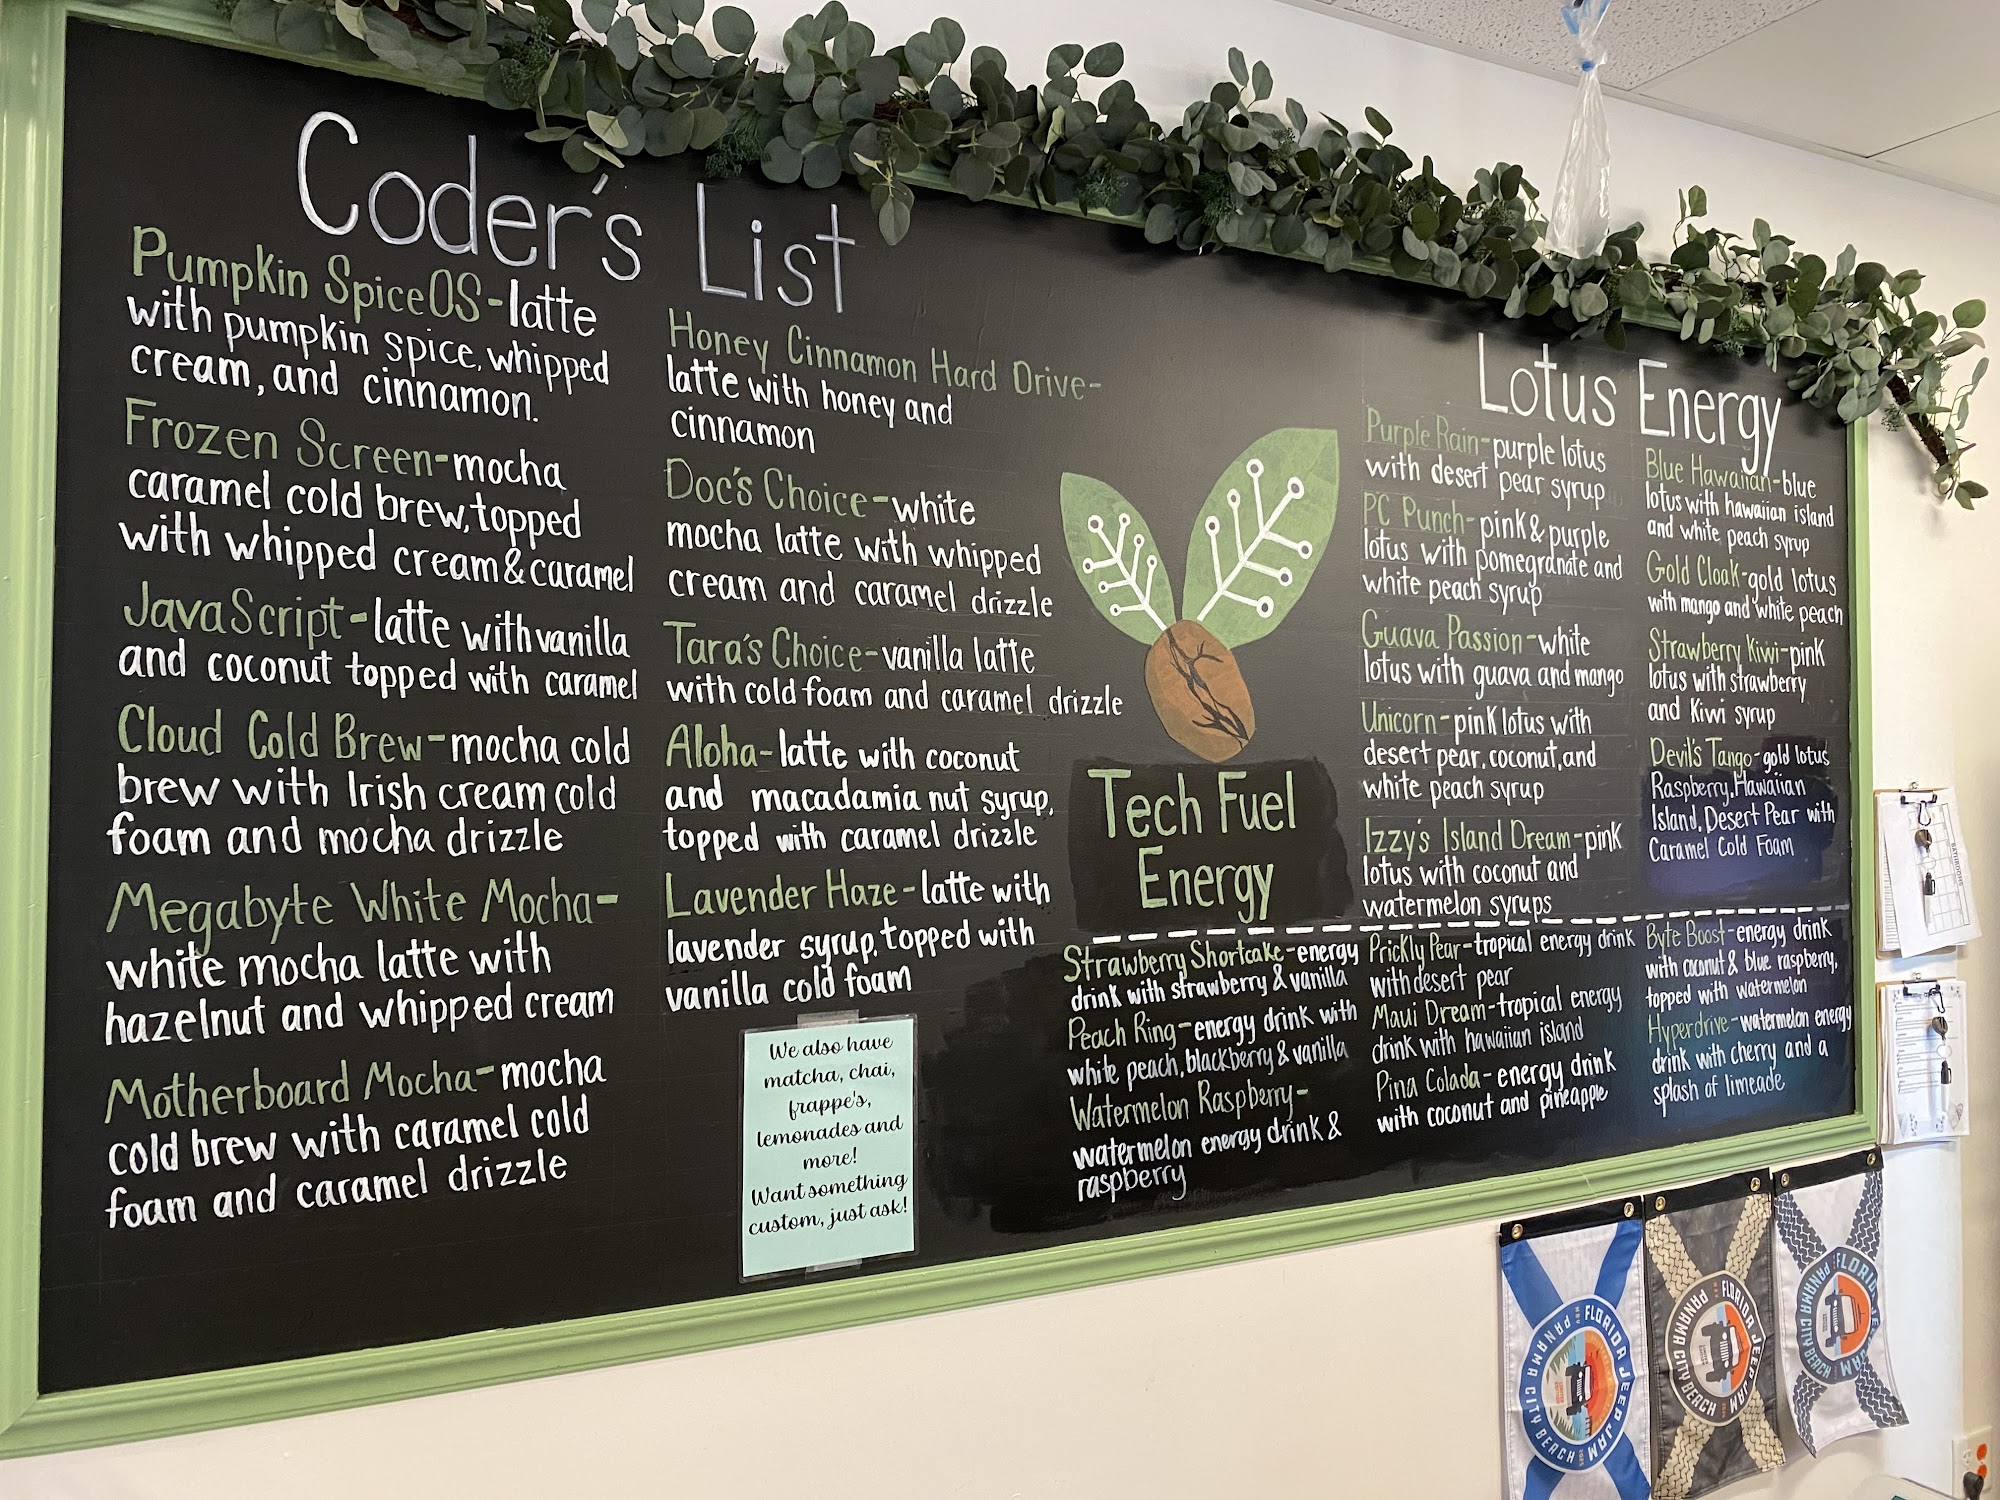 Coder's List
Pumpkin SpiceOS-latte
with pumpkin spice, whipped
cream, and cinnamon.
Frozen Screen-mocha
caramel cold brew, topped
with whipped cream & caramel
JavaScript-latte with vanilla
and coconut topped with caramel
Cloud Cold Brew-mocha cold
brew with Irish cream cold
foam and mocha drizzle
Megabyte White Mocha-
white mocha latte with
hazelnut and whipped cream
Motherboard Mocha-mocha
cold brew with caramel cold
foam and caramel drizzle
Honey Cinnamon Hard Drive-
latte with honey and
cinnamon
Doc's Choice-white
mocha latte with whipped
cream and caramel drizzle
Tara's Choice-vanilla latte
with cold foam and caramel drizzle
Aloha-latte with coconut
and macadamia nut syrup,
topped with caramel drizzle
Lavender Haze-latte with
lavender syrup, topped with
vanilla cold foam
We also have
matcha, chai,
frappe's,
lemonades and
more!
Want something
custom, just ask!
Lotus Energy
Purple Rain-purple lotus
with desert pear syrup
PC Punch-pink & purple
lotus with pomegranate and
white peach syrup
Guava Passion-white
lotus with guava and mango
Unicorn-pink lotus with
desert pear, coconut, and
white peach syrup
Izzy's Island Dream-pink
lotus with coconut and
watermelon syrups
Blue Hawaiian-blue
lotus with hawaiian island
and white peach syrup
Gold Cloak-gold lotus
with mango and white peach
Strawberry Kiwi-pink
lotus with strawberry
and Kiwi syrup
Devil's Tango-gold lotus
Raspberry, Hawaiian
Island, Desert Pear with
Caramel Cold Foam
Tech Fuel
Energy
Strawberry Shortcake-energy
drink with strawberry & vanilla
Peach Ring-energy drink with
white peach, blackberry & vanilla
Watermelon Raspberry-
watermelon energy drink &
raspberry
Prickly Pear-tropical energy drink
with desert pear
Maui Dream-tropical energy
drink with hawaiian island
Pina Colada-energy drink
with coconut and pineapple
Byte Boost-energy drink
with coconut & blue raspberry,
topped with watermelon
Hyperdrive-watermelon energy
drink with cherry and a
splash of limeade
FLORIDA JEEP JAM
PANAMA CITY BEACH
FLORIDA JEEP JAM
PANAMA CITY BEACH
FLORIDA JEEP JAM
PANAMA CITY BEACH